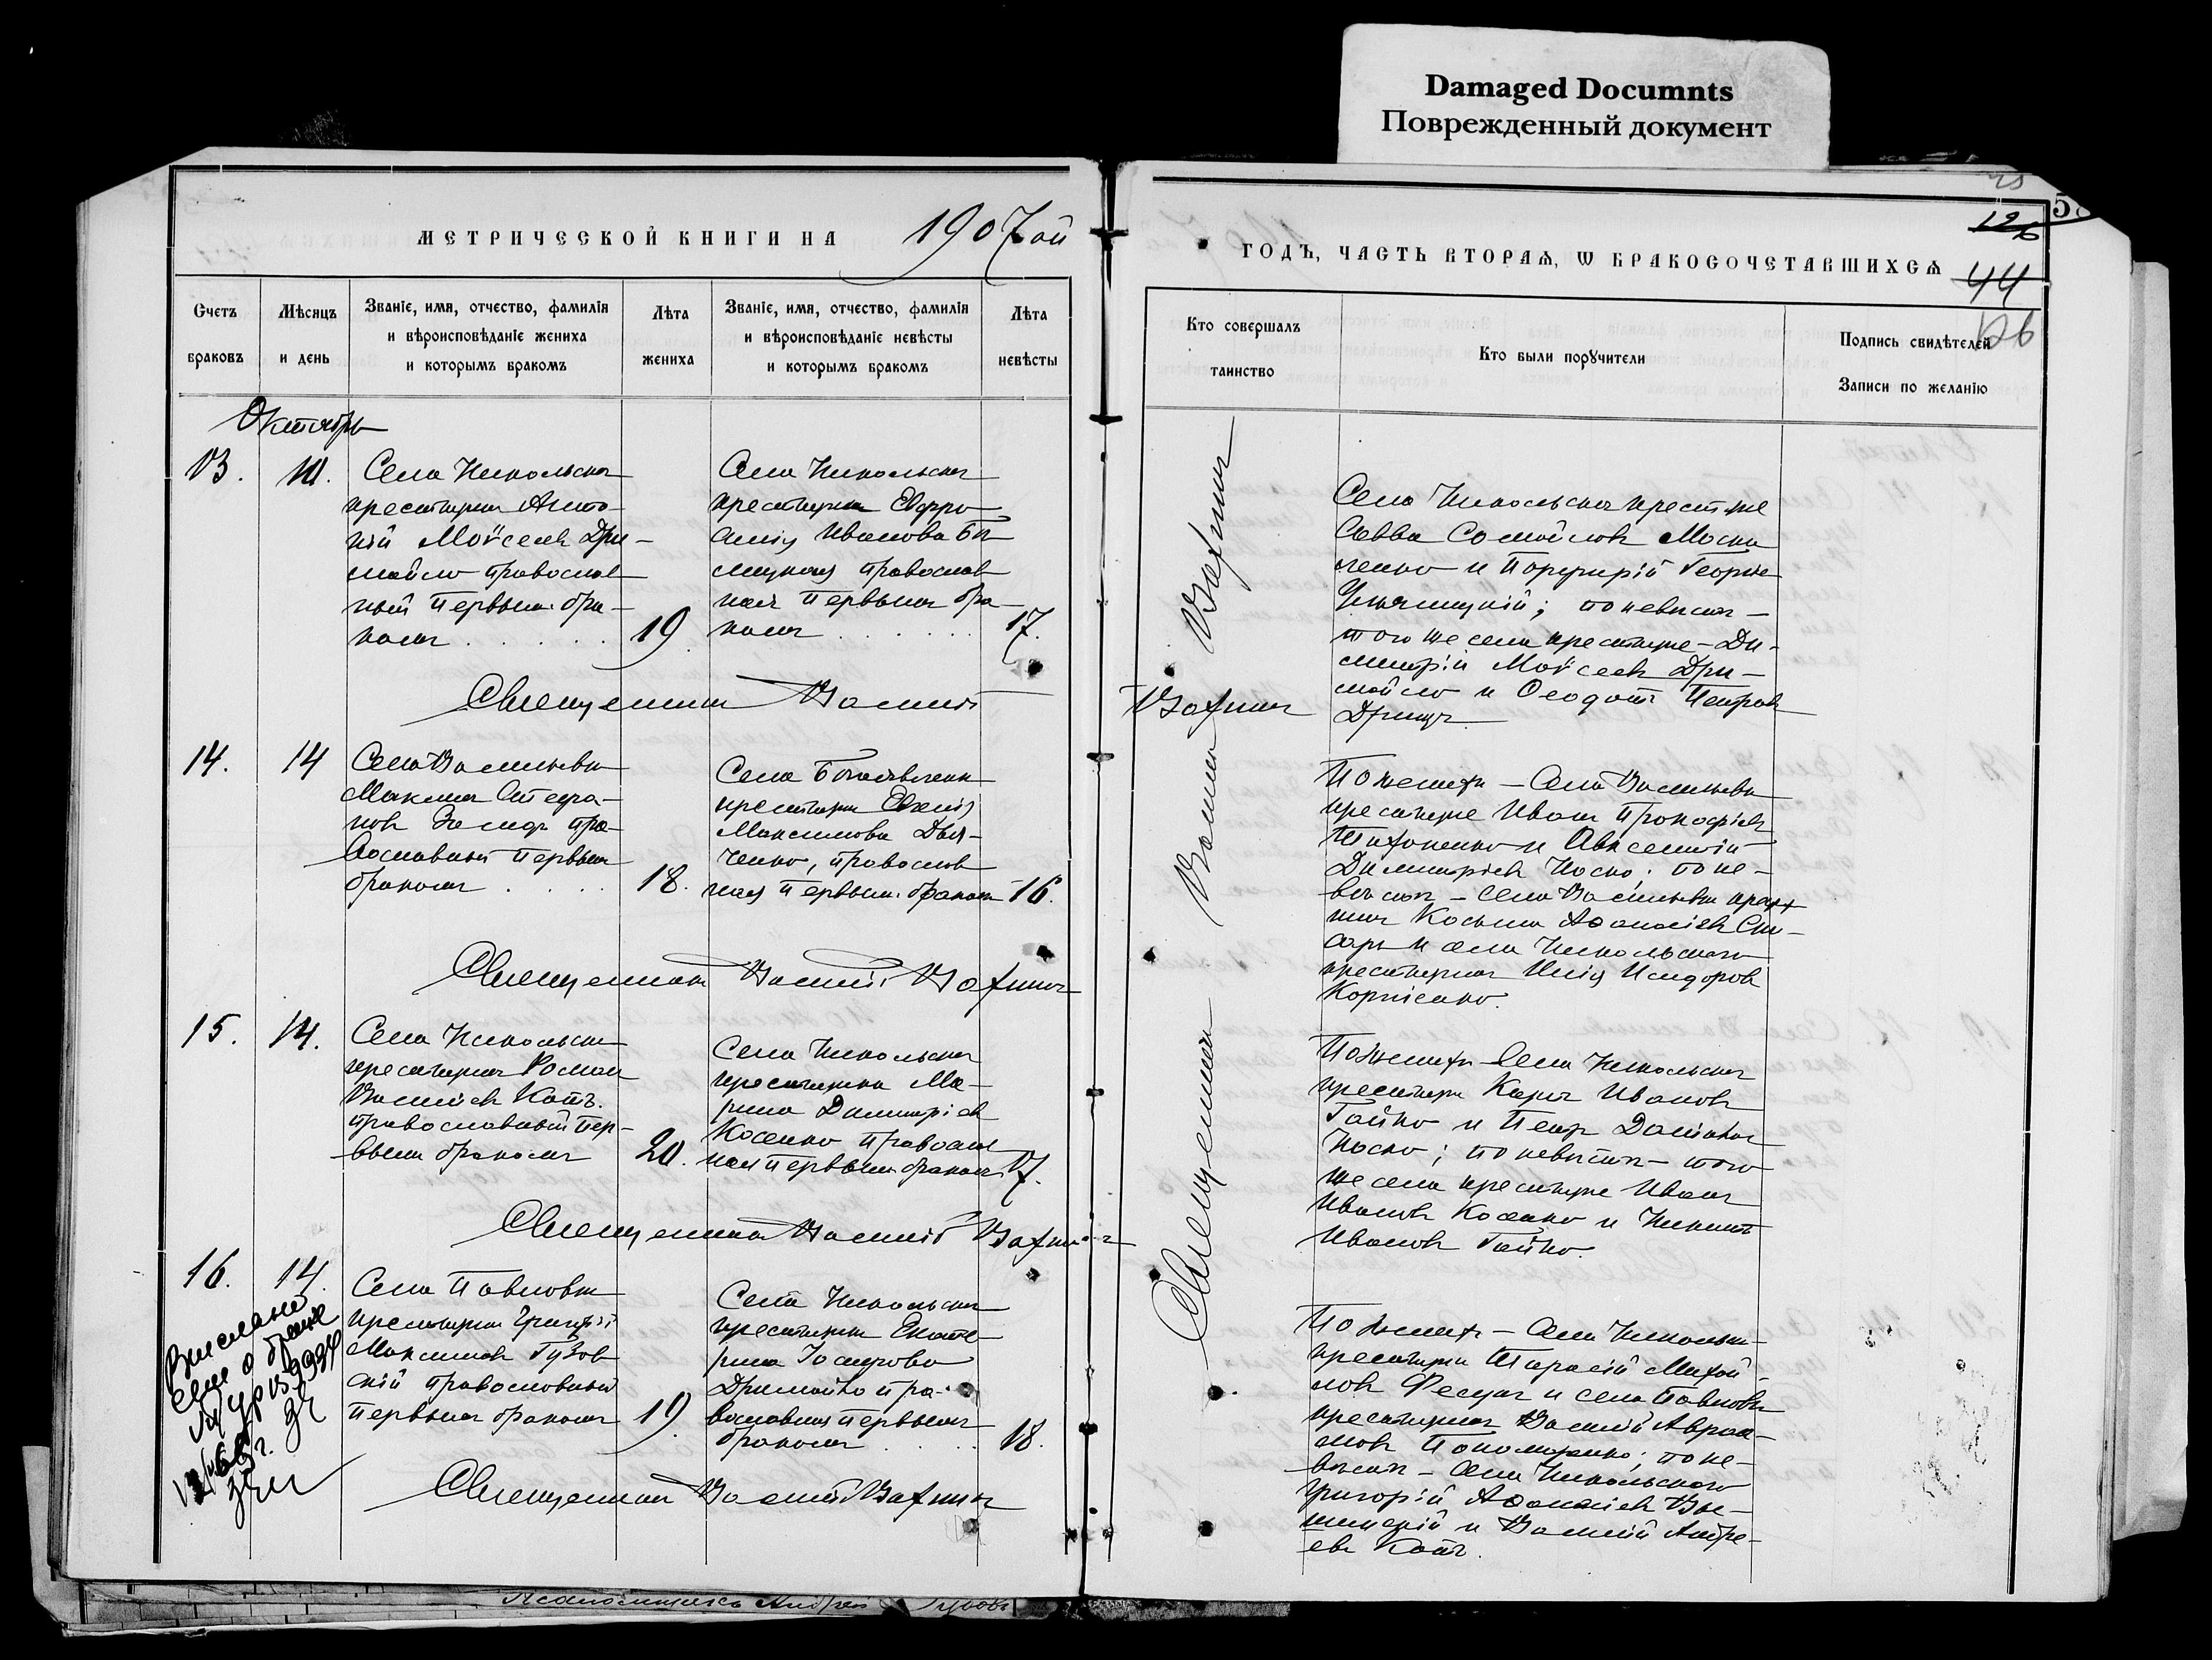 Damaged Documnts
Поврежденный документ
МЕТРИЧЕСКОЙ КНИГИ НА 1907 ой
Счетъ браковъ
Мѣсяцъ и день
Званіе, имя, отчество, фамилія
и вѣроисповѣданіе жениха
и которымъ бракомъ
Лѣта жениха
Званіе, имя, отчество, фамилія
и вѣроисповѣданіе невѣсты
и которымъ бракомъ
Лѣта невѣсты
Октябрь
13.
Села Никольска
крестьянин Анто-
ній Моѵсеев Дри-
майло православ
ный первым бра-
ком
19
Села Никольска
крестьянка Евфро
синія Иванова
православ
ная первым бра
ком
17.
Священник Василій
Вахнин
14.
14
Села Васильевки
Максим Стефа-
нов пра-
вославный первым
браком
18.
Села Богоявленки
крестьянка Евгенія
Максимова Дья-
ченко, православ
ная первым браком
16.
Священник Василій Вахнин
15.
14.
Села Никольска
крестьянин Роман
Василіев Котъ.
православный пер-
вым браком
20.
Села Никольска
крестьянка Ма-
рина Димитріев
Косенко правосла
ная первым браком
17.
Священник Василій Вахнин
16.
14.
Села Павловки
крестьянин Григорій
Максимов Гузов
скій православный
первым браком
19
Села Никольска
крестьянка Екате-
рина Іосифова
Дримайло пра-
вославная первым
браком
18.
Священник Василій Вахнин
ГОДЪ, ЧАСТЬ ВТОРАЯ, Ѡ БРАКОСОЧЕТАВШИХСЯ
44
126
Кто совершалъ таинство
Кто были порꙋчители
Подпись свидѣтелей
Записи по желанію
Священник Василий Вахнин
Села Никольска крест-не
Савва Самойлов Моска
ленко и Порфирій Георгіе
по невѣсте-
того же села крестьяне - Ди-
митрій Моѵсеев Дри-
майло и Ѳеодот Петров
По женихе - Села Васильевки
крестьяне Иван Прокофіев
Тихоненко и Авксентій
Димитріев Носко; по не-
вѣсте - села Васильевки
Косьма Аѳанасіев Сли-
сарь и села Никольскаго
крестьянин Илія Исидоров
Корніенко.
По женихе - Села Никольска
крестьяне Карп Иванов
Гайко и Петр
Носко; по невѣсте - того
же села крестьяне Иван
Иванов Косенко и Никита
Иванов Гайко.
По женихе - Села Никольска
крестьянин Тарасій Михай
лов и села Павловки
крестьянин Василій Авраа-
мов Пономаренко; по не-
вѣсте - Села Никольскаго
Григорій Аѳанасіев
и Василій Андре-
ев Котъ.